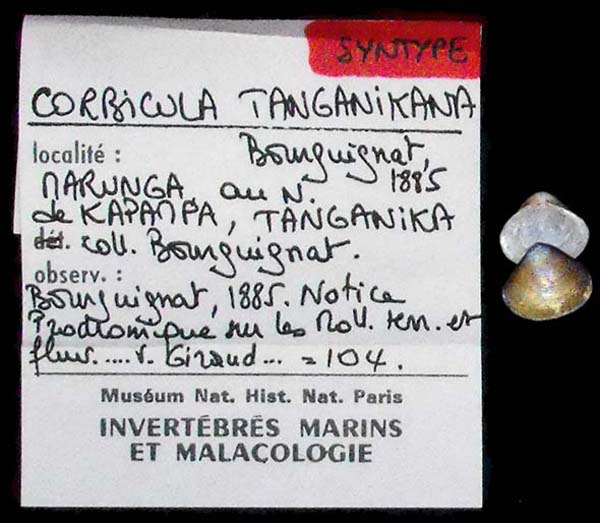 SYNTYPE
CORBICULA TANGANIKANA
Bourguignat,
localité :
1885
MARUNGA au N.
de KAPAMPA, TANGANIKA
dét. coll. Bourguignat.
observ. :
Bourguignat, 1885. Notice
Prodromique sur les Moll. terr. et
fluv. .... v. Giraud ... = 104.
Muséum Nat. Hist. Nat. Paris
INVERTÉBRÉS MARINS
ET MALACOLOGIE